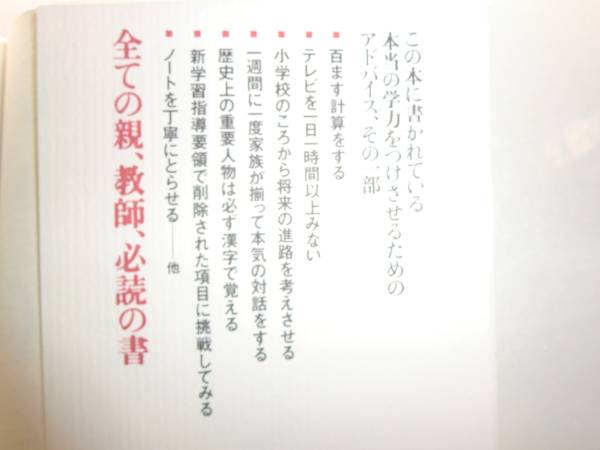 この本に書かれている
本当の学力をつけさせるための
アドバイス、その一部
■ 百ます計算をする
■ テレビを一日一時間以上みない
■ 小学校のころから将来の進路を考えさせる
■ 一週間に一度家族が揃って本気の対話をする
■ 歴史上の重要人物は必ず漢字で覚える
■ 新学習指導要領で削除された項目に挑戦してみる
■ ノートを丁寧にとらせる――他
全ての親、教師、必読の書